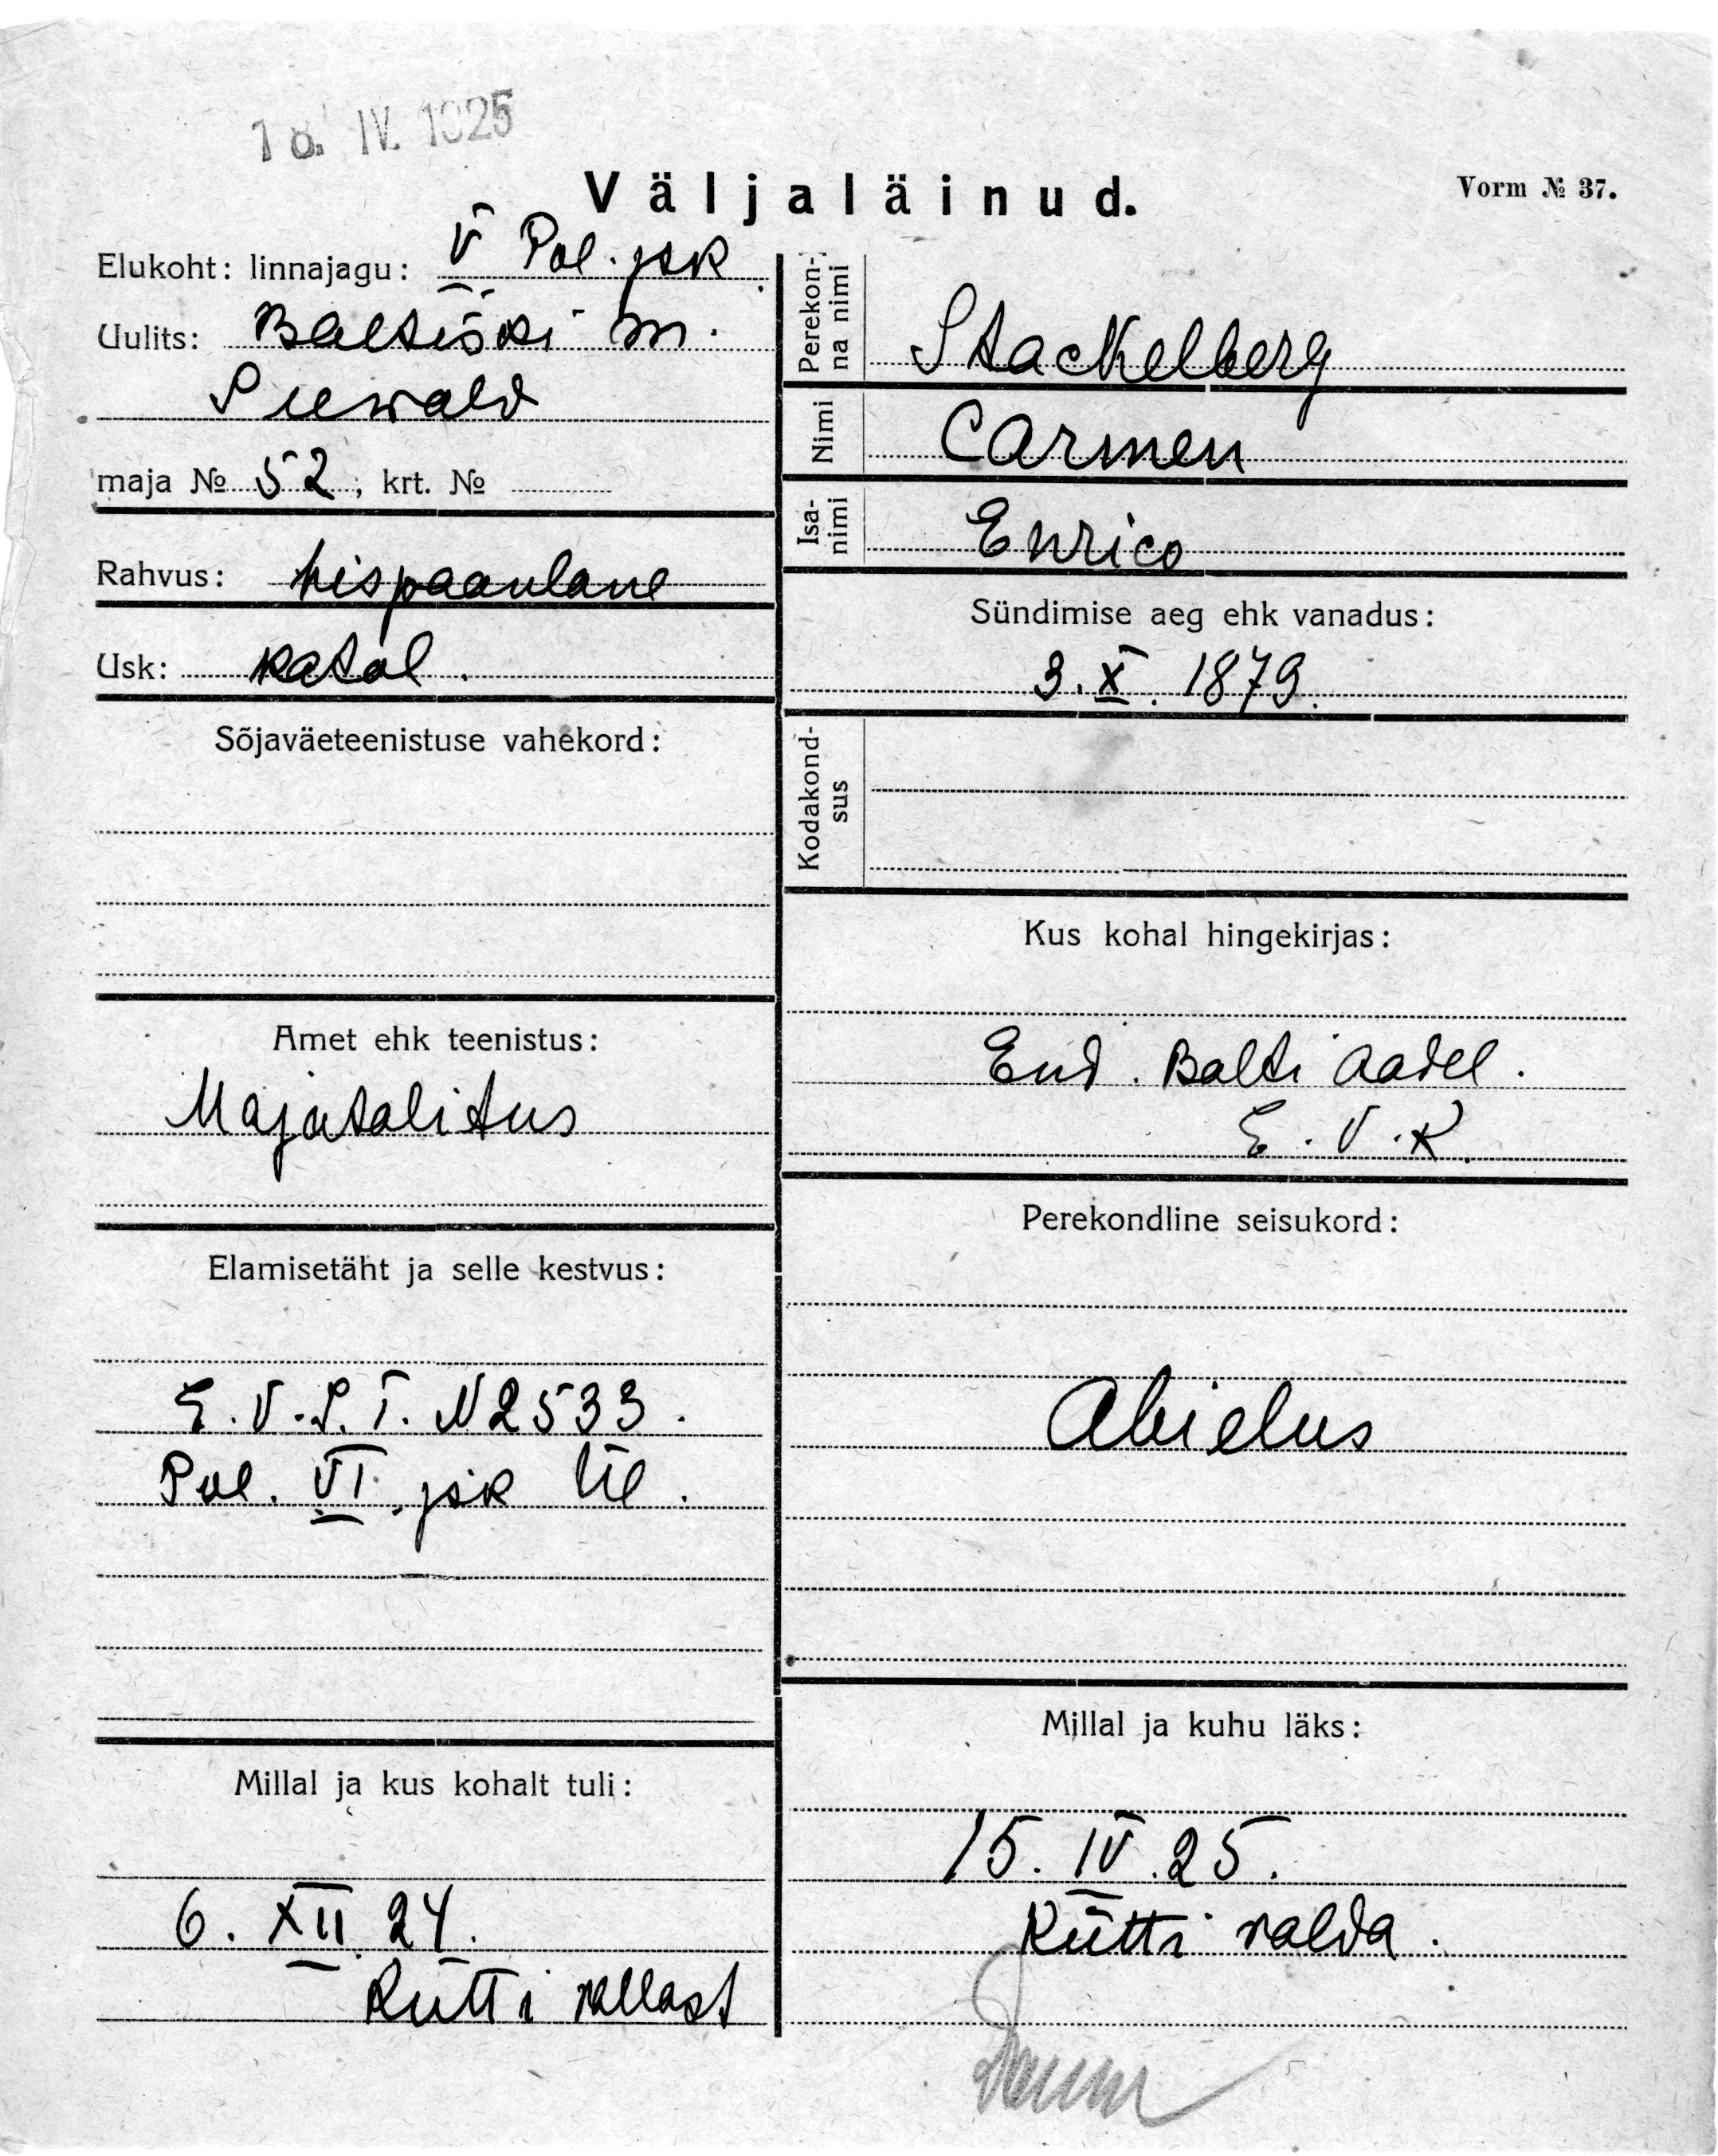 IV. 1925
Väljaläinud.
Vorm № 37.
Elukoht: linnajagu: V Pol. jsk
Uulits: Baltiski m.
Seewald
maja № 52, krt. №
Rahvus: hispaanlane
Usk: katol.
Sõjaväeteenistuse vahekord:
Amet ehk teenistus:
Majatalitus
Elamisetäht ja selle kestvus:
E.V.S.T. N 2533.
Pol. VI jsk ül.
Millal ja kus kohalt tuli:
6. XII 24.
Rütti vallast
Perekon-
na nimi
Stackelberg
Nimi
Carmen
Isa-
nimi
Enrico
Sündimise aeg ehk vanadus:
3. X. 1879.
Kodakond-
sus
Kus kohal hingekirjas:
End. Balti aadel.
E.V.K.
Perekondline seisukord:
Abielus
Millal ja kuhu läks:
15. IV. 25.
Rütti valda.